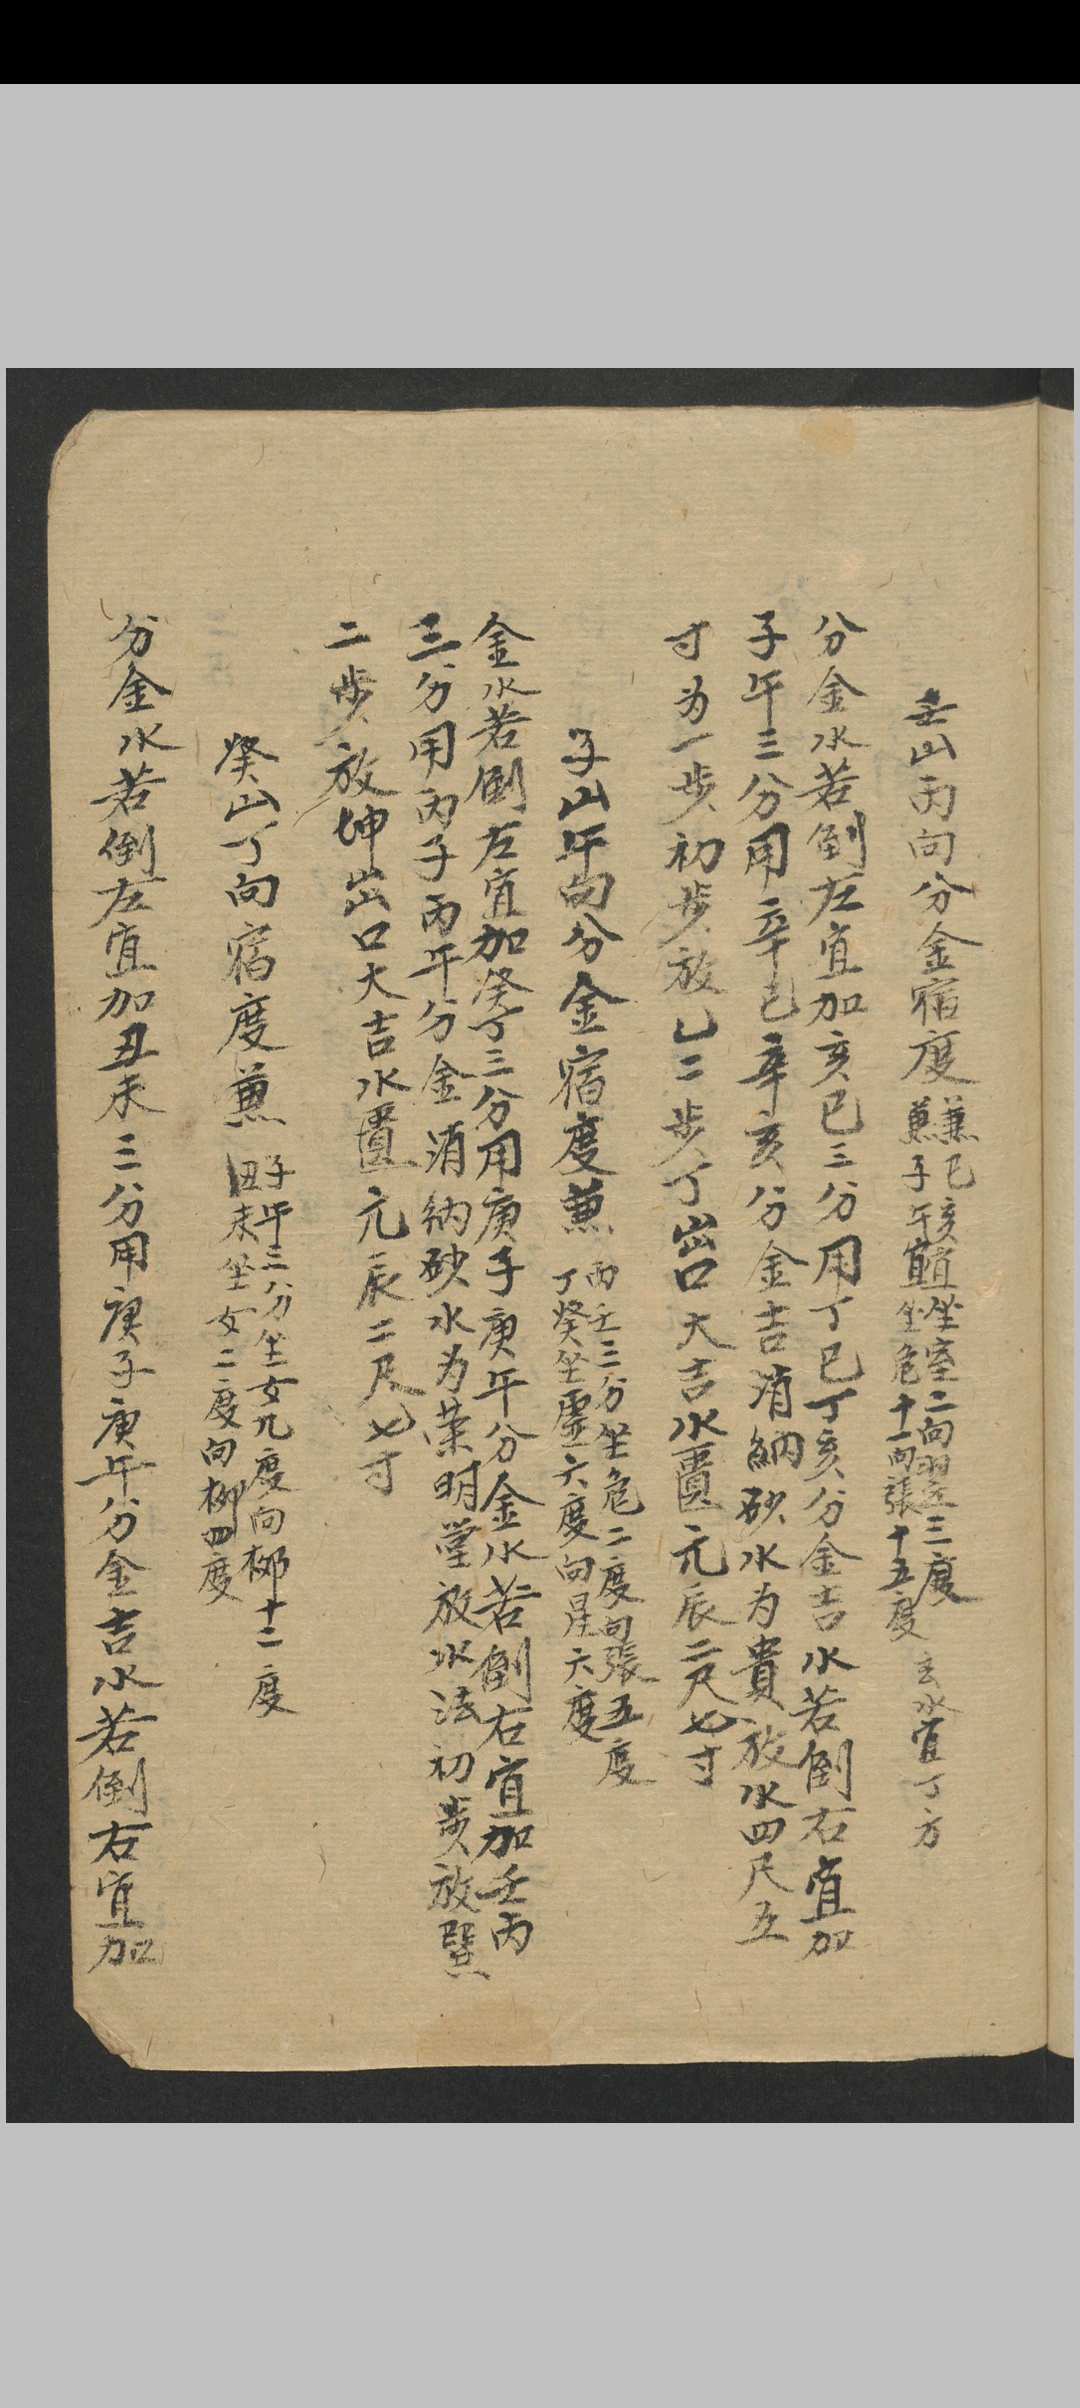 壬山丙向分金宿度 兼巳亥宜坐室二向翌三度
兼子午宜坐危十一向張十五度 玄水宜丁方
分金水若倒左宜加亥巳三分用丁巳丁亥分金吉水若倒右宜加
子午三分用辛巳辛亥分金吉消納砂水为貴放水四尺五
寸为一步初步放乙二步丁出口大吉水匱元辰二尺七寸
子山午向分金宿度兼 丙壬三分坐危二度向張五度
丁癸坐虛六度向星六度
金水若倒左宜加癸丁三分用庚子庚午分金水若倒右宜加壬丙
三分用丙子丙午分金消納砂水为荣明堂放水法初步放巽
二步放坤出口大吉水匱元辰二尺七寸
癸山丁向宿度兼 子午三分坐女九度向柳十二度
丑未坐女二度向柳四度
分金水若倒左宜加丑未三分用庚子庚午分金吉水若倒右宜加